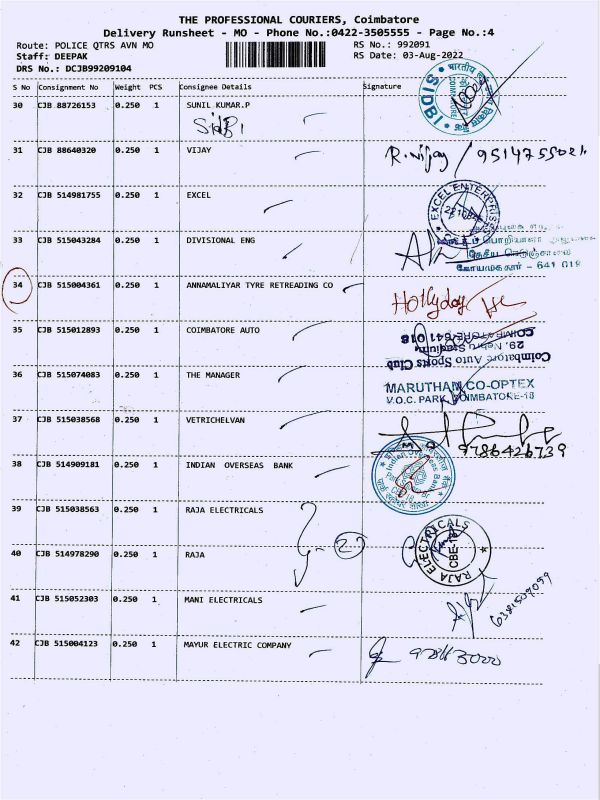 THE PROFESSIONAL COURIERS, Coimbatore
Delivery Runsheet - MO - Phone No.:0422-3505555 - Page No.:4
Route: POLICE QTRS AVN MO RS No.: 992091
Staff: DEEPAK RS Date: 03-Aug-2022
DRS No.: DCJB99209104
S No Consignment No Weight PCS Consignee Details Signature
30 CJB 88726153 0.250 1 SUNIL KUMAR.P
SIDBI
SIDBI
31 CJB 88640320 0.250 1 VIJAY R.vijay / 9514755021
32 CJB 514981755 0.250 1 EXCEL
EXCEL ENTERPRISES
33 CJB 515043284 0.250 1 DIVISIONAL ENG
தேசிய நெடுஞ்சாலை
கோயமுத்தூர் - 641 018
34 CJB 515004361 0.250 1 ANNAMALIYAR TYRE RETREADING CO
35 CJB 515012893 0.250 1 COIMBATORE AUTO
Coimbatore Auto Sports Club
29, Nehru Stadium,
COIMBATORE-641 018
36 CJB 515074083 0.250 1 THE MANAGER
MARUTHAM CO-OPTEX
V.O.C. PARK, COIMBATORE-18
37 CJB 515038568 0.250 1 VETRICHELVAN
9786426739
38 CJB 514909181 0.250 1 INDIAN OVERSEAS BANK
Indian Overseas Bank
39 CJB 515038563 0.250 1 RAJA ELECTRICALS
40 CJB 514978290 0.250 1 RAJA
RAJA ELECTRICALS
CBE-18
41 CJB 515052303 0.250 1 MANI ELECTRICALS
6381509099
42 CJB 515004123 0.250 1 MAYUR ELECTRIC COMPANY